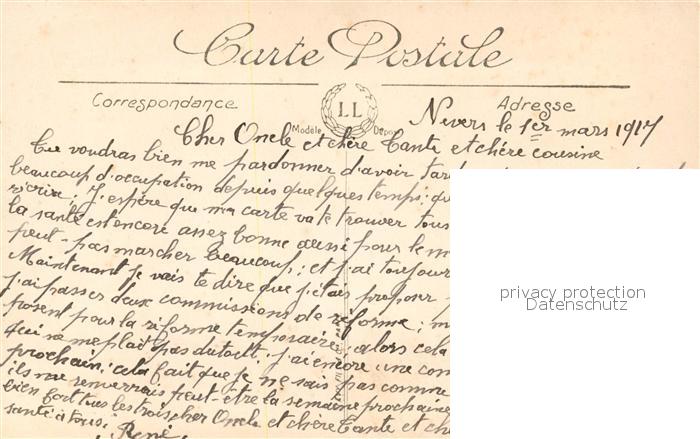 Carte Postale
Correspondance
Adresse
LL
Modèle Déposé
Nevers le 1er mars 1917
Cher Oncle et chère Tante et chère cousine
Tu voudras bien me pardonner d'avoir tard
beaucoup d'occupation depuis quelques temps; qu
écrire; J'espère que ma carte va te trouver tous
la santé est encore assez bonne aussi pour le m
peut-pas marcher beaucoup; et j'ai toujour
Maintenant je vais te dire que j'étais proposer
j'ai passer deux commissions de réforme; m
posent pour la réforme temporaire; alors cela
qui ne me plait pas du tout, j'ai encore une com
prochain; cela fait que je ne sais pas comme
ils me renverrais peut-être la semaine prochaine
bien fort tous les trois cher Oncle et chère Tante et ch
santé à tous;
René
privacy protection
Datenschutz